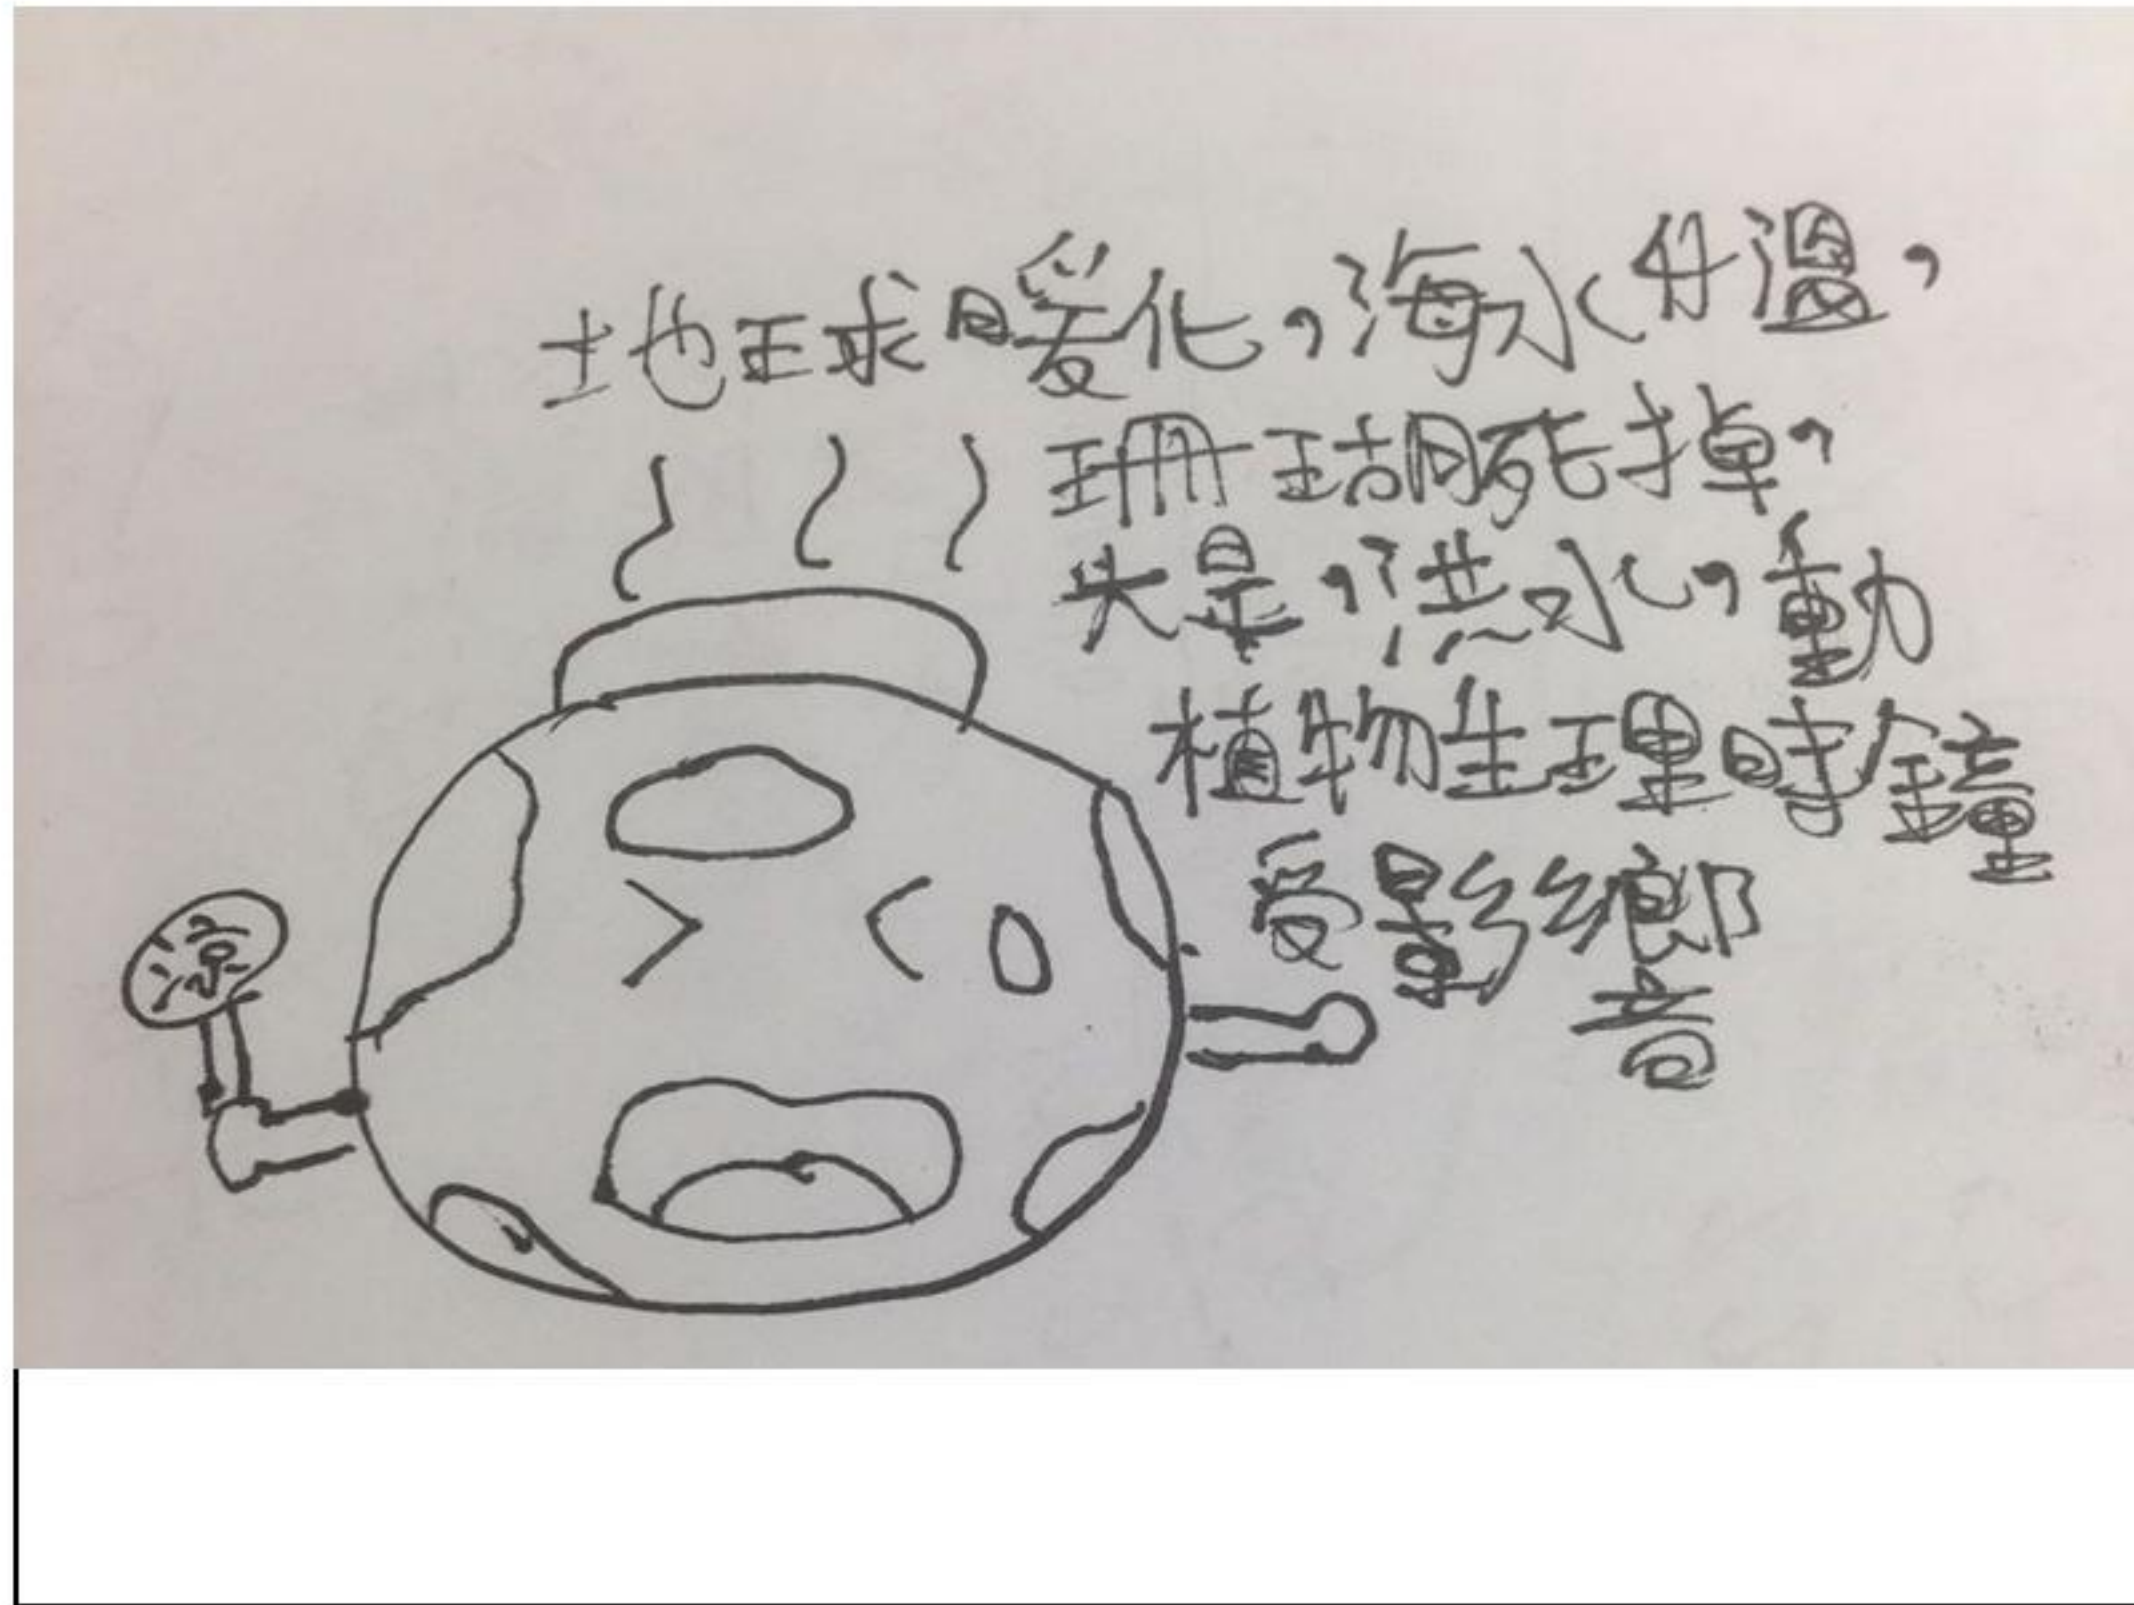 地球暖化，海水升溫，
珊瑚死掉，
旱，洪水，動
植物生理時鐘
受影響
涼